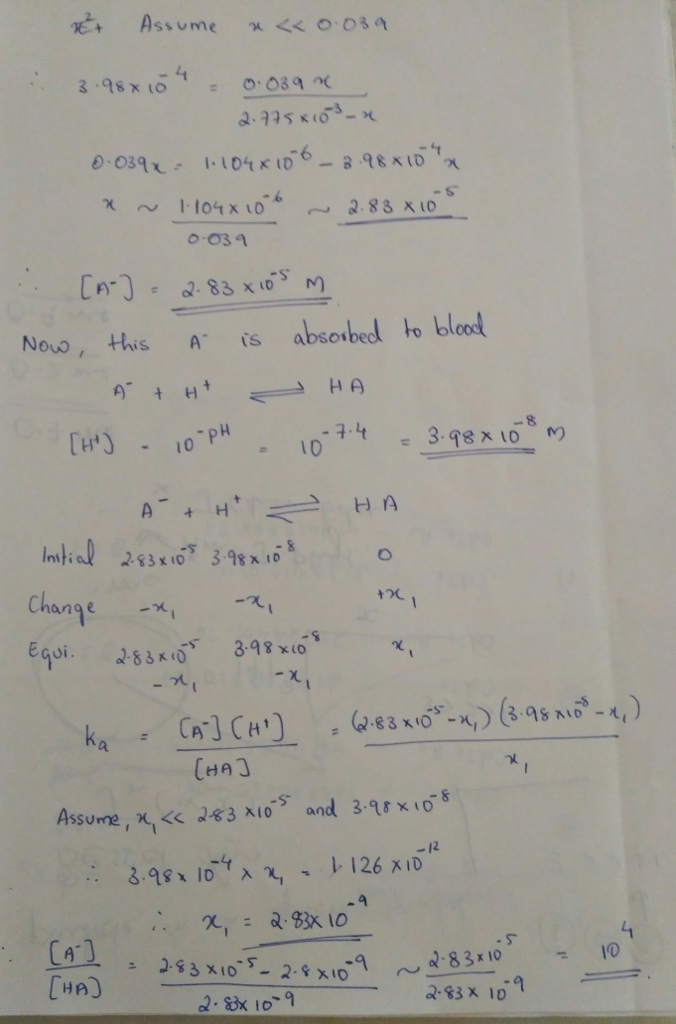 x²+ Assume x << 0.039
∴ 3.98x10⁻⁴ = 0.039 x / 2.775x10⁻³ - x
0.039x = 1.104x10⁻⁶ - 3.98x10⁻⁴ x
x ~ 1.104x10⁻⁶ / 0.039 ~ 2.83 x10⁻⁵
∴ [A⁻] = 2.83 x10⁻⁵ M
Now, this A⁻ is absorbed to blood
A⁻ + H⁺ ⇌ HA
[H⁺] - 10^-pH = 10^-7.4 = 3.98x10⁻⁸ M
A⁻ + H⁺ ⇌ HA
Initial 2.83x10⁻⁵ 3.98x10⁻⁸ 0
Change -x₁ -x₁ +x₁
Equi. 2.83x10⁻⁵ 3.98x10⁻⁸ x₁
-x₁ -x₁
Ka = [A⁻][H⁺] / [HA] = (2.83x10⁻⁵-x₁)(3.98x10⁻⁸-x₁) / x₁
Assume, x₁ << 2.83x10⁻⁵ and 3.98x10⁻⁸
∴ 3.98x10⁻⁴ x x₁ = 1.126x10⁻¹²
∴ x₁ = 2.83x10⁻⁹
∴ [A⁻] / [HA] = 2.83x10⁻⁵ - 2.8x10⁻⁹ / 2.83x10⁻⁹ ~ 2.83x10⁻⁵ / 2.83x10⁻⁹ = 10⁴.